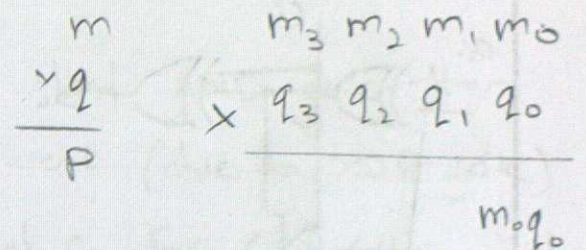 m
× q
p
m₃ m₂ m₁ m₀
× q₃ q₂ q₁ q₀
m₀q₀